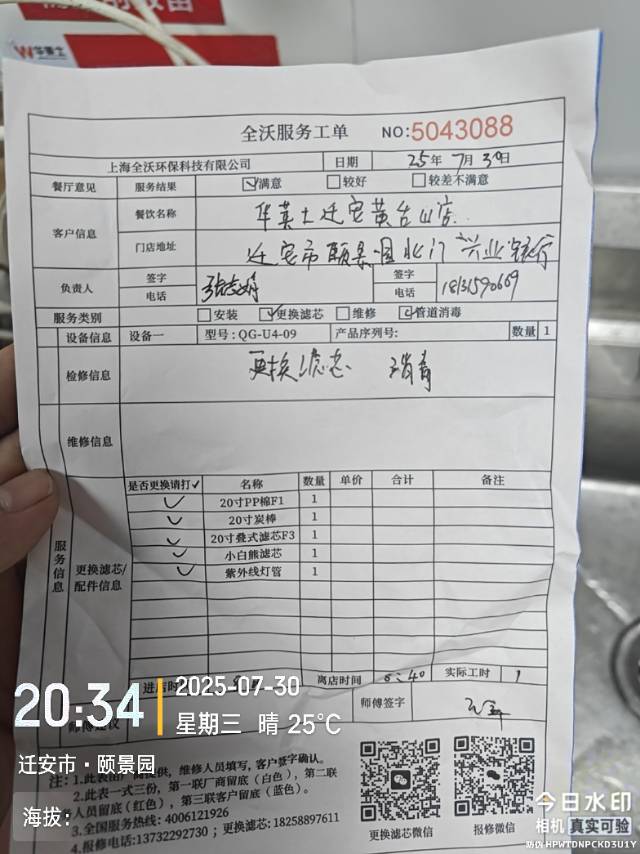 华莱士
全沃服务工单 NO:5043088
上海全沃环保科技有限公司 日期 25年 7月 30日
餐厅意见 服务结果 ☑满意 □较好 □较差不满意
客户信息 餐饮名称 华莱士迁安黄台山店
门店地址 迁安市颐景园北门兴业银行
负责人 签字 签字
电话 电话
服务类别 □安装 ☑更换滤芯 □维修 ☑管道消毒
设备信息 设备一 型号:QG-U4-09 产品序列号: 数量 1
检修信息 更换滤芯 消毒
维修信息
服务信息 更换滤芯/配件信息
是否更换请打✓ 名称 数量 单价 合计 备注
✓ 20寸PP棉F1 1
✓ 20寸炭棒 1
✓ 20寸叠式滤芯F3 1
✓ 小白熊滤芯 1
✓ 紫外线灯管 1
离店时间 8:40 实际工时 1
师傅签字
20:34 2025-07-30
星期三 晴 25℃
迁安市·颐景园
海拔:
供,维修人员填写,客户签字确认。
2.此表一式三份,第一联厂商留底(白色),第二联
务人员留底(红色),第三联客户留底(蓝色)。
3.全国服务热线:4006121926
4.报修电话:13732292730 ;更换滤芯:18258897611
更换滤芯微信 报修微信
今日水印
相机 真实可验
防伪 HPWTDNPCKD3U1Y